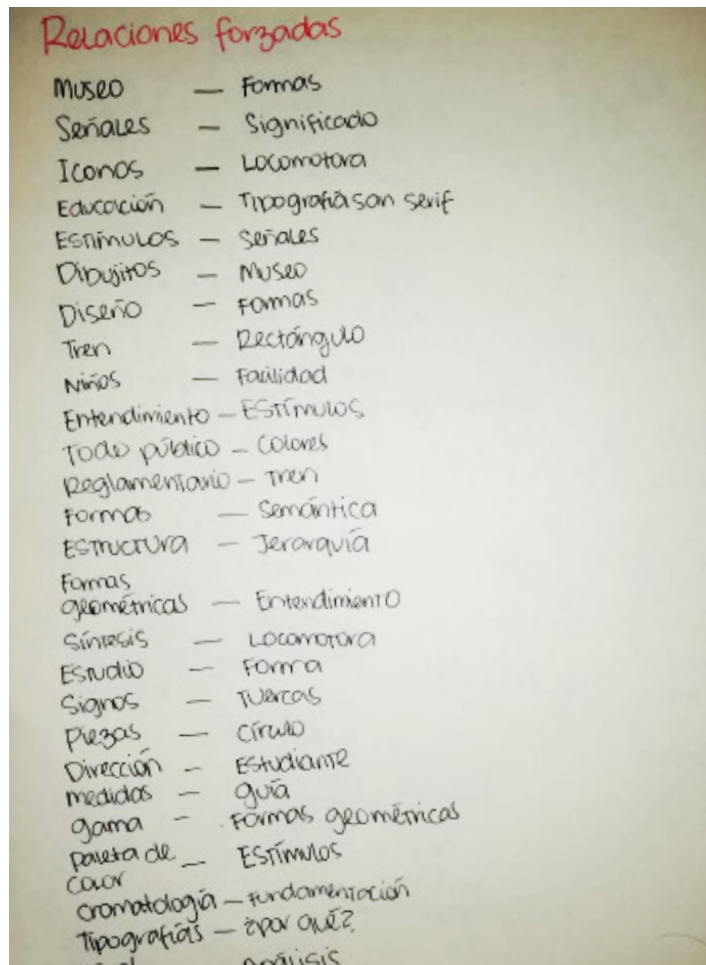 Relaciones forzadas
Museo — Formas
Señales — Significado
Iconos — Locomotora
Educación — Tipografía san serif
Estímulos — Señales
Dibujitos — Museo
Diseño — Formas
Tren — Rectángulo
Niños — Facilidad
Entendimiento — Estímulos
Todo público — Colores
Reglamentario — Tren
Formas — Semántica
Estructura — Jerarquía
Formas
geométricas — Entendimiento
Síntesis — Locomotora
Estudio — Forma
Signos — Tuercas
Piezas — Círculo
Dirección — Estudiante
medidas — guía
gama — Formas geométricas
paleta de — Estímulos
color
cromatología — Fundamentación
Tipografías — ¿por qué?
Análisis